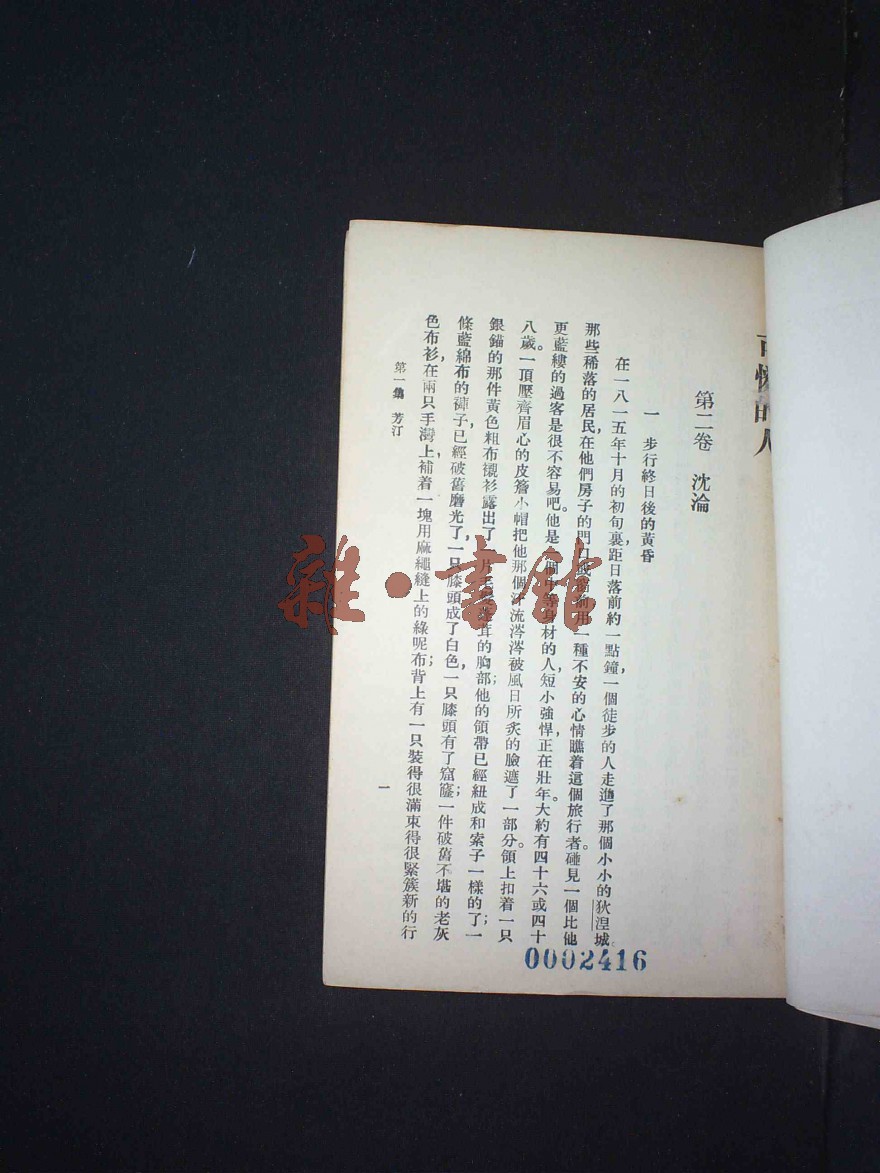 可憐的人
第二卷 沈淪
一 步行終日後的黃昏
在一八一五年十月的初旬裏，距日落前約一點鐘，一個徒步的人走進了那個小小的狄涅城
那些稀落的居民，在他們房子的門口或窗前，用一種不安的心情瞧着這個旅行者。碰見一個比他
更藍縷的過客是很不容易吧。他是一個中等身材的人，短小強悍，正在壯年。大約有四十六或四十
八歲。一頂壓齊眉心的皮簷小帽把他那個汗流涔涔被風日所炙的臉遮了一部分。領上扣着一只
銀錨的那件黃色粗布襯衫露出了一片毛蓬茸的胸部，他的領帶已經紐成和索子一樣的了；一
條藍綿布的褲子已經破舊磨光了，一只膝頭成了白色，一只膝頭有了窟窿；一件破舊不堪的老灰
色布衫，在兩只手灣上，補着一塊用麻繩縫上的綠呢布；背上有一只裝得很滿束得很緊簇新的行
第一集 芳汀
一
0002416
雜·書館